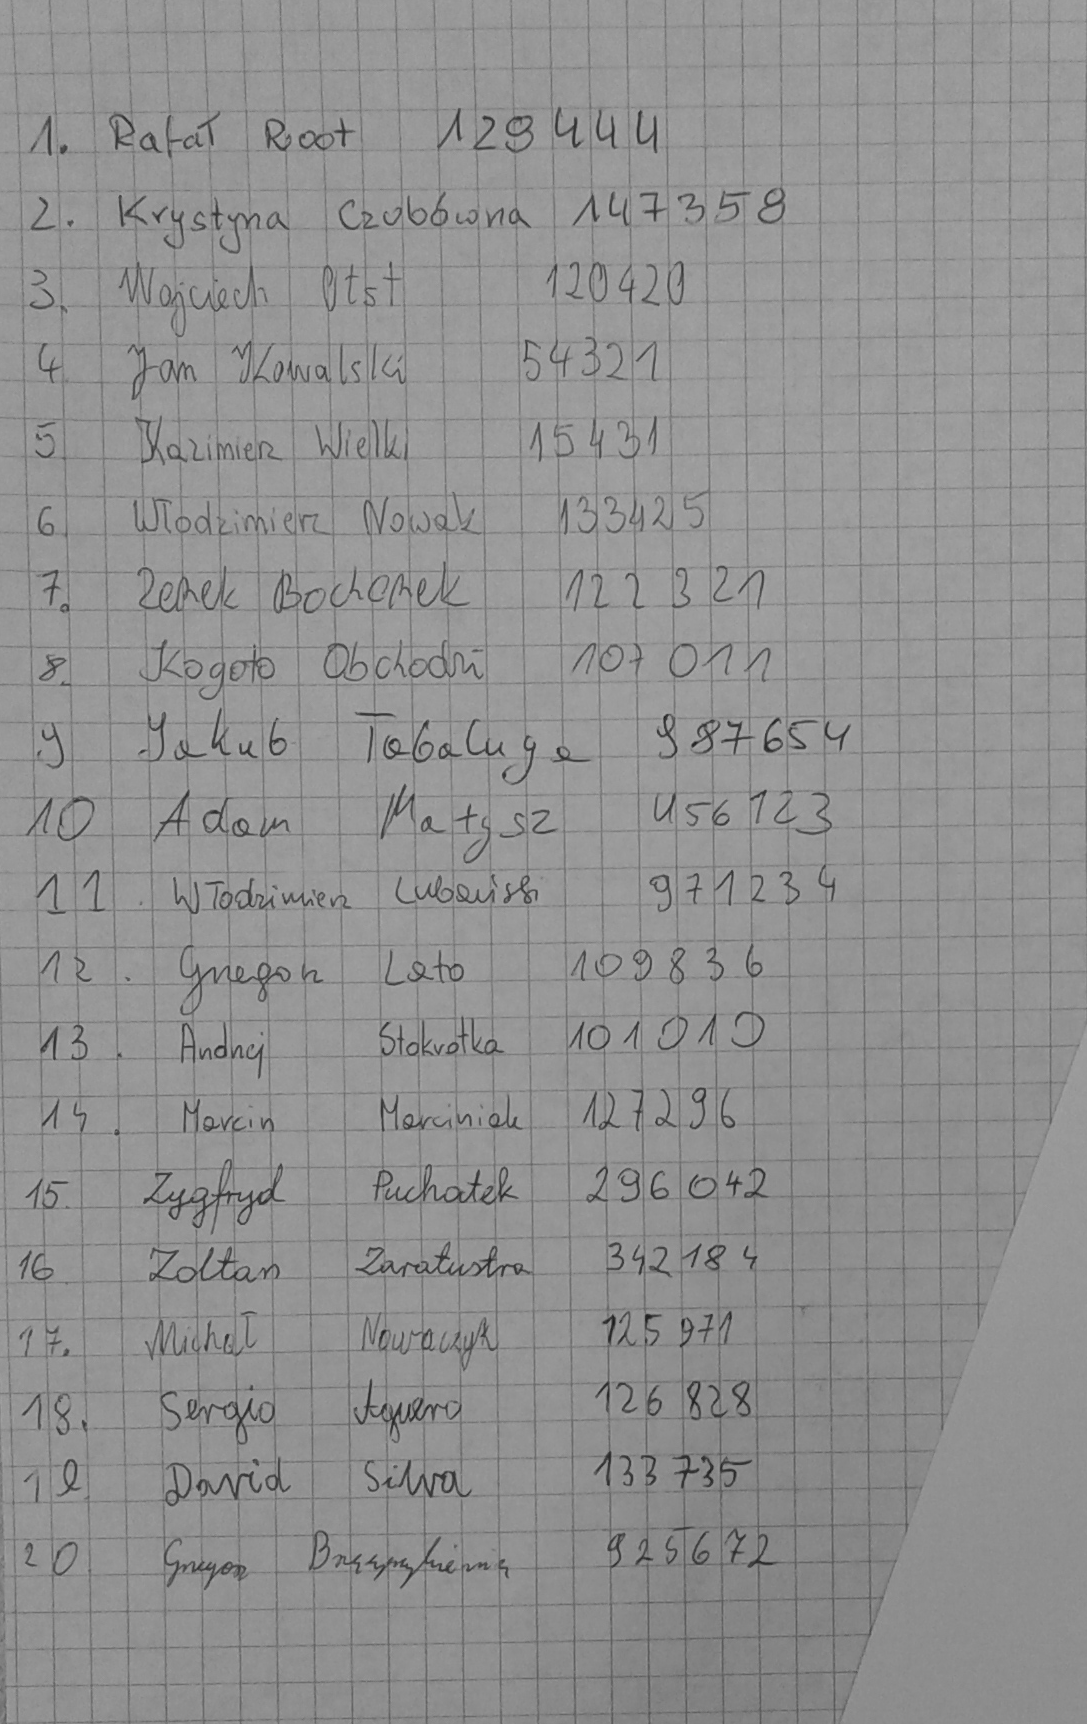 1. Rafał Root 129444
2. Krystyna Czubówna 147358
3. Wojciech Otst 120420
4 Jan Kowalski 54321
5 Kazimierz Wielki 15431
6 Włodzimierz Nowak 133425
7. Zenek Bochenek 122321
8. Kogoto Obchodzi 107011
9 Jakub Tabaluga 987654
10 Adam Matysz 456123
11. Włodzimierz 971234
12. Grzegorz Lato 109836
13. Andrzej Stokrotka 101010
14. Marcin Marciniak 127296
15. Zygfryd Puchatek 296042
16 Zoltan Zaratustra 342184
17. Michał Nowaczyk 125971
18. Sergio Aguero 126828
19 David Silva 133735
20 Grzegorz 925672